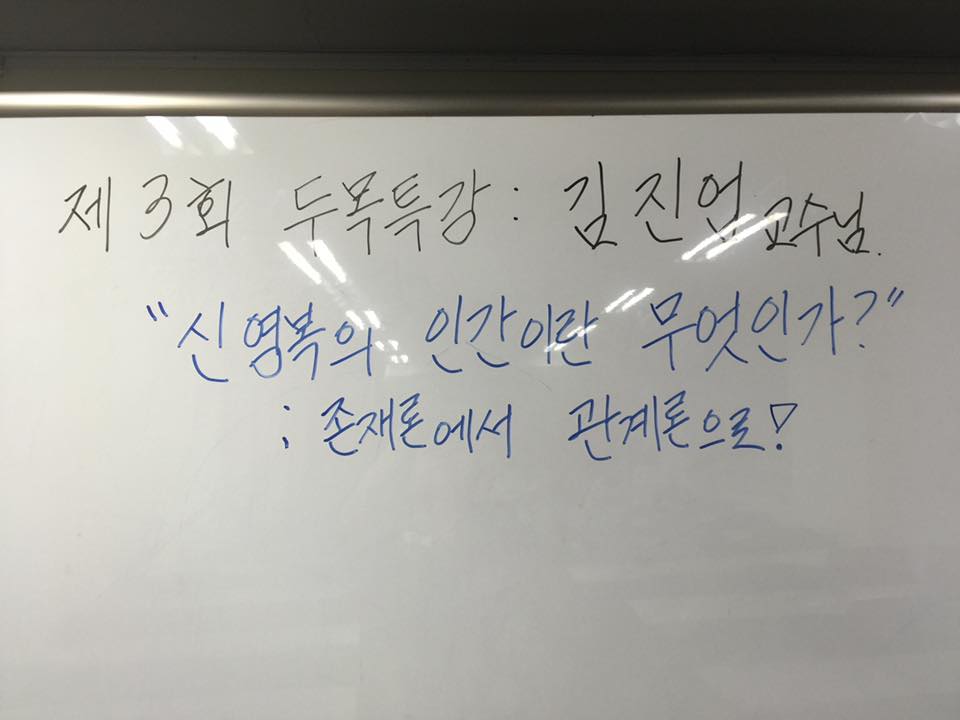 제 3회 두목특강 : 김진업 교수님.
"신영복의 인간이란 무엇인가?"
; 존재론에서 관계론으로!